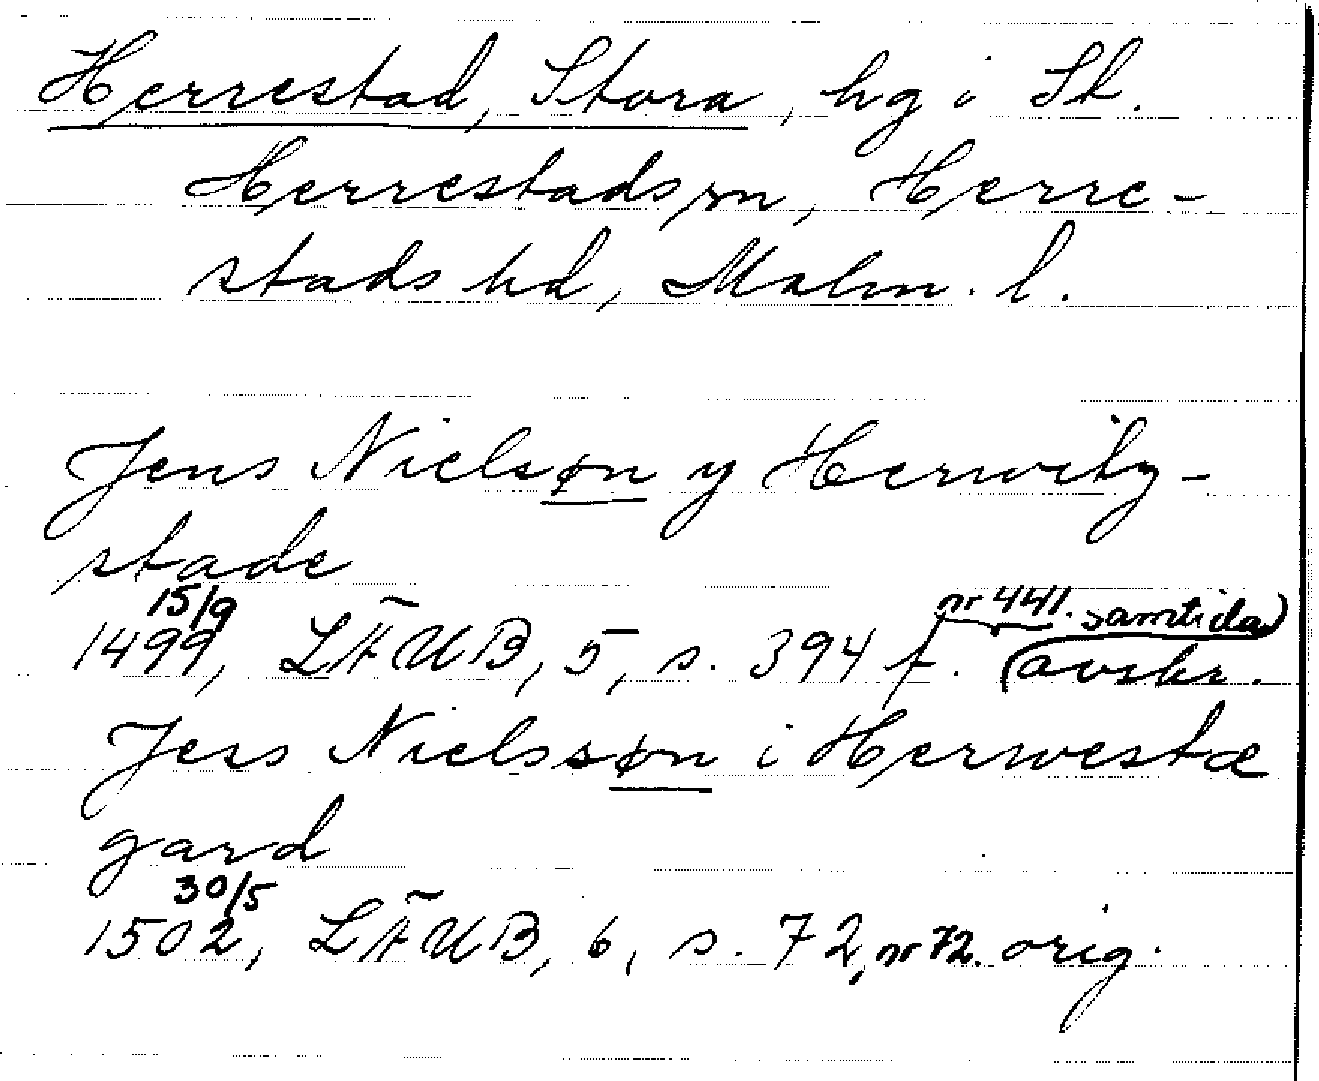 Herrestad, Stora, hg i St.
Herrestads sn, Herre-
stads hd, Malm. l.
Jens Nielsøn y Herwity-
stade
15/9
nr 441. samtida
1499, LÄUB, 5, s. 394 f. (avskr.)
Jess Nielssøn i Herwestæ
gard
30/5
1502, LÄUB, 6, s. 72, nr 72. orig.